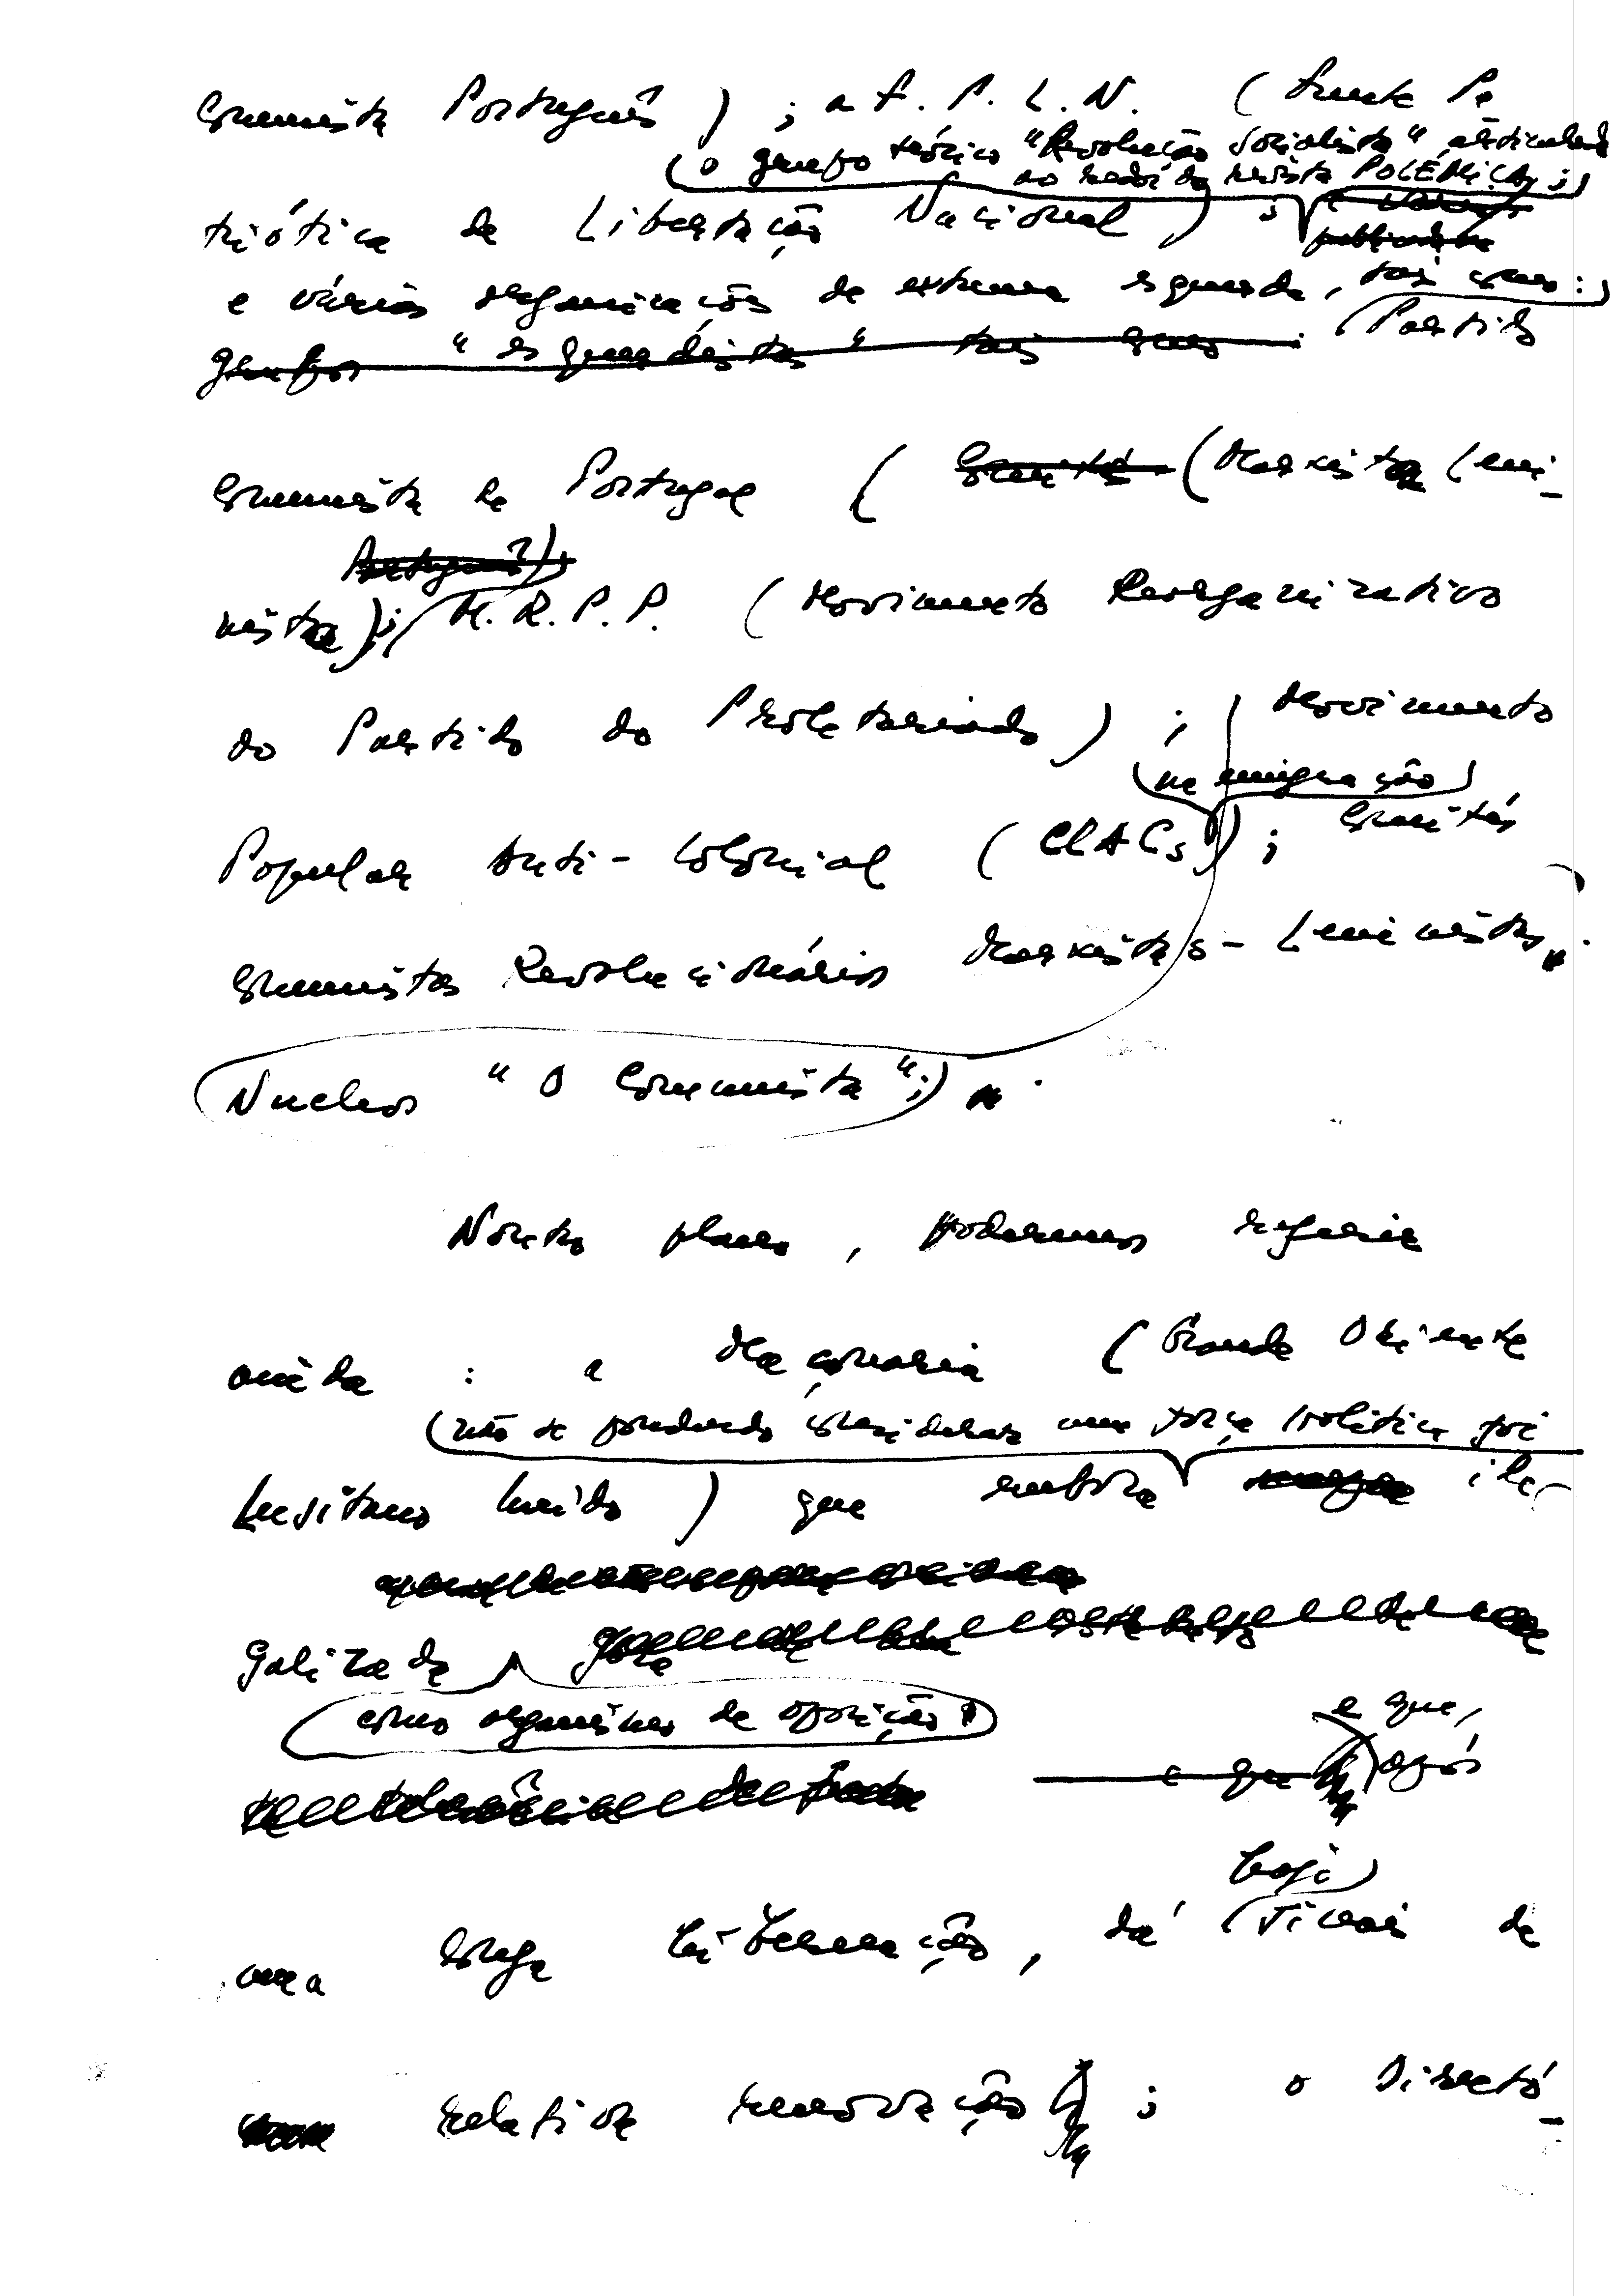 Comunista Português) ; a F. P. L. N. (Frente Pa
(o grupo teórico "Revolução Socialista" articulado
ao redor da revista POLÉMICA;)
triótica de Libertação Nacional) ;
e várias organizações de extrema esquerda, tais como:
grupos "esquerdistas" tais como : (Partido
Comunista de Portugal ( Comité (Marxista Leni-
Português?),
nista); M. R. P. P. (Movimento Reorganizativo
do Partido do Proletariado) ; Movimento
(na emigração)
Popular Anti-Colonial (CLACs) ; Comités
Comunistas Revolucionários Marxistas-Leninistas.
Nucleos "O Comunista";
Noutro plano, poderemos referir
ainda : a Maçonaria (Grande Oriente
(não se podendo considerar uma força política foi
Lusitano Unido) que embora ile-
galizada
(como organismo de oposição)
e que,
e que após
hoje)
uma longa hibernação, dá sinais de
relativa renovação ; o Directó-